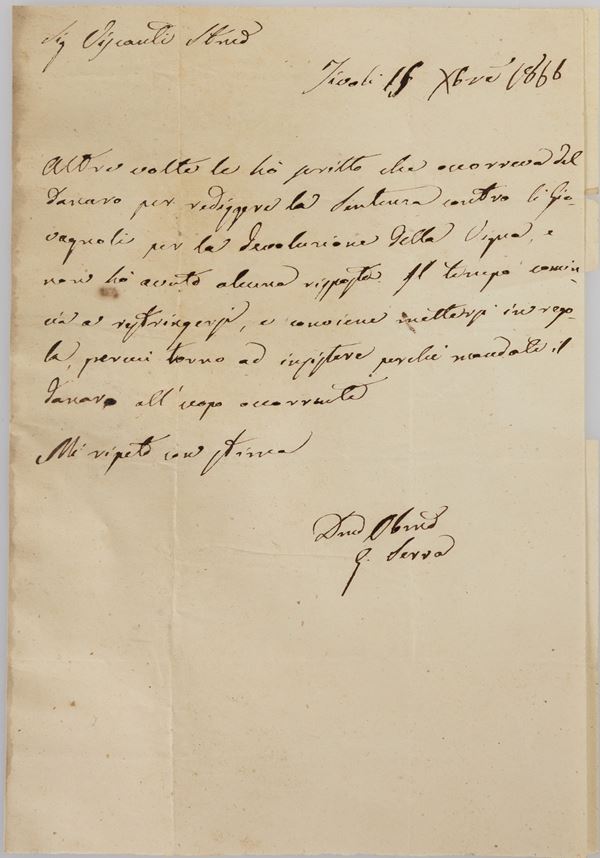 Sig Visconti Stmo
Tivoli 15 Xbre 1866
Altre volte le ho scritto che occorreva del
danaro per rediggere la Sentenza contro li Gio-
vagnoli per la devoluzione della Vigna, e
non ho avuto alcuna risposta. Il tempo comin-
cia a restringersi, e conviene mettersi in rego-
la, percui torno ad insistere perché mandiate il
danaro all'uopo occorrente
Mi ripeto con stima
Dmo Obmo
G. Serra